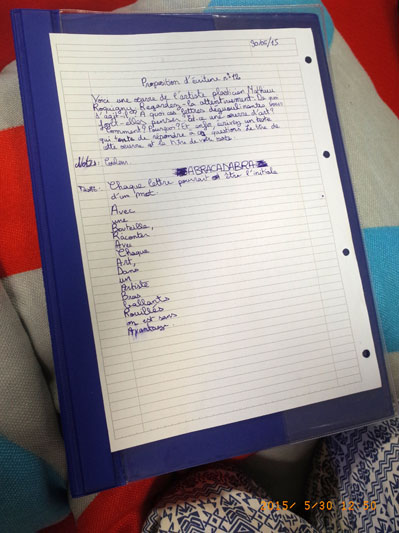 30/05/15
Proposition d'écriture n°12
Voici une œuvre de l'artiste plasticien Mathieu
Regardez-la attentivement. De quoi
s'agit-il? A quoi ces lettres dégoulinantes vous
font-elles penser? Est-ce une œuvre d'art?
Comment? Pourquoi? Et enfin, écrivez un texte
qui tente de répondre à ces questions. Le titre de
cette œuvre est le titre de vos mots.
Notes:
ABRACADABRA
Texte: Chaque lettre pourrait être l'initiale
d'un mot.
Avec
une
Bouteille,
Raconter
Avec
Chaque
Art,
Dans
un
Artiste
Bras
ballants
Rouillés
on est sans
Avantage
2015/ 5/30 12:50